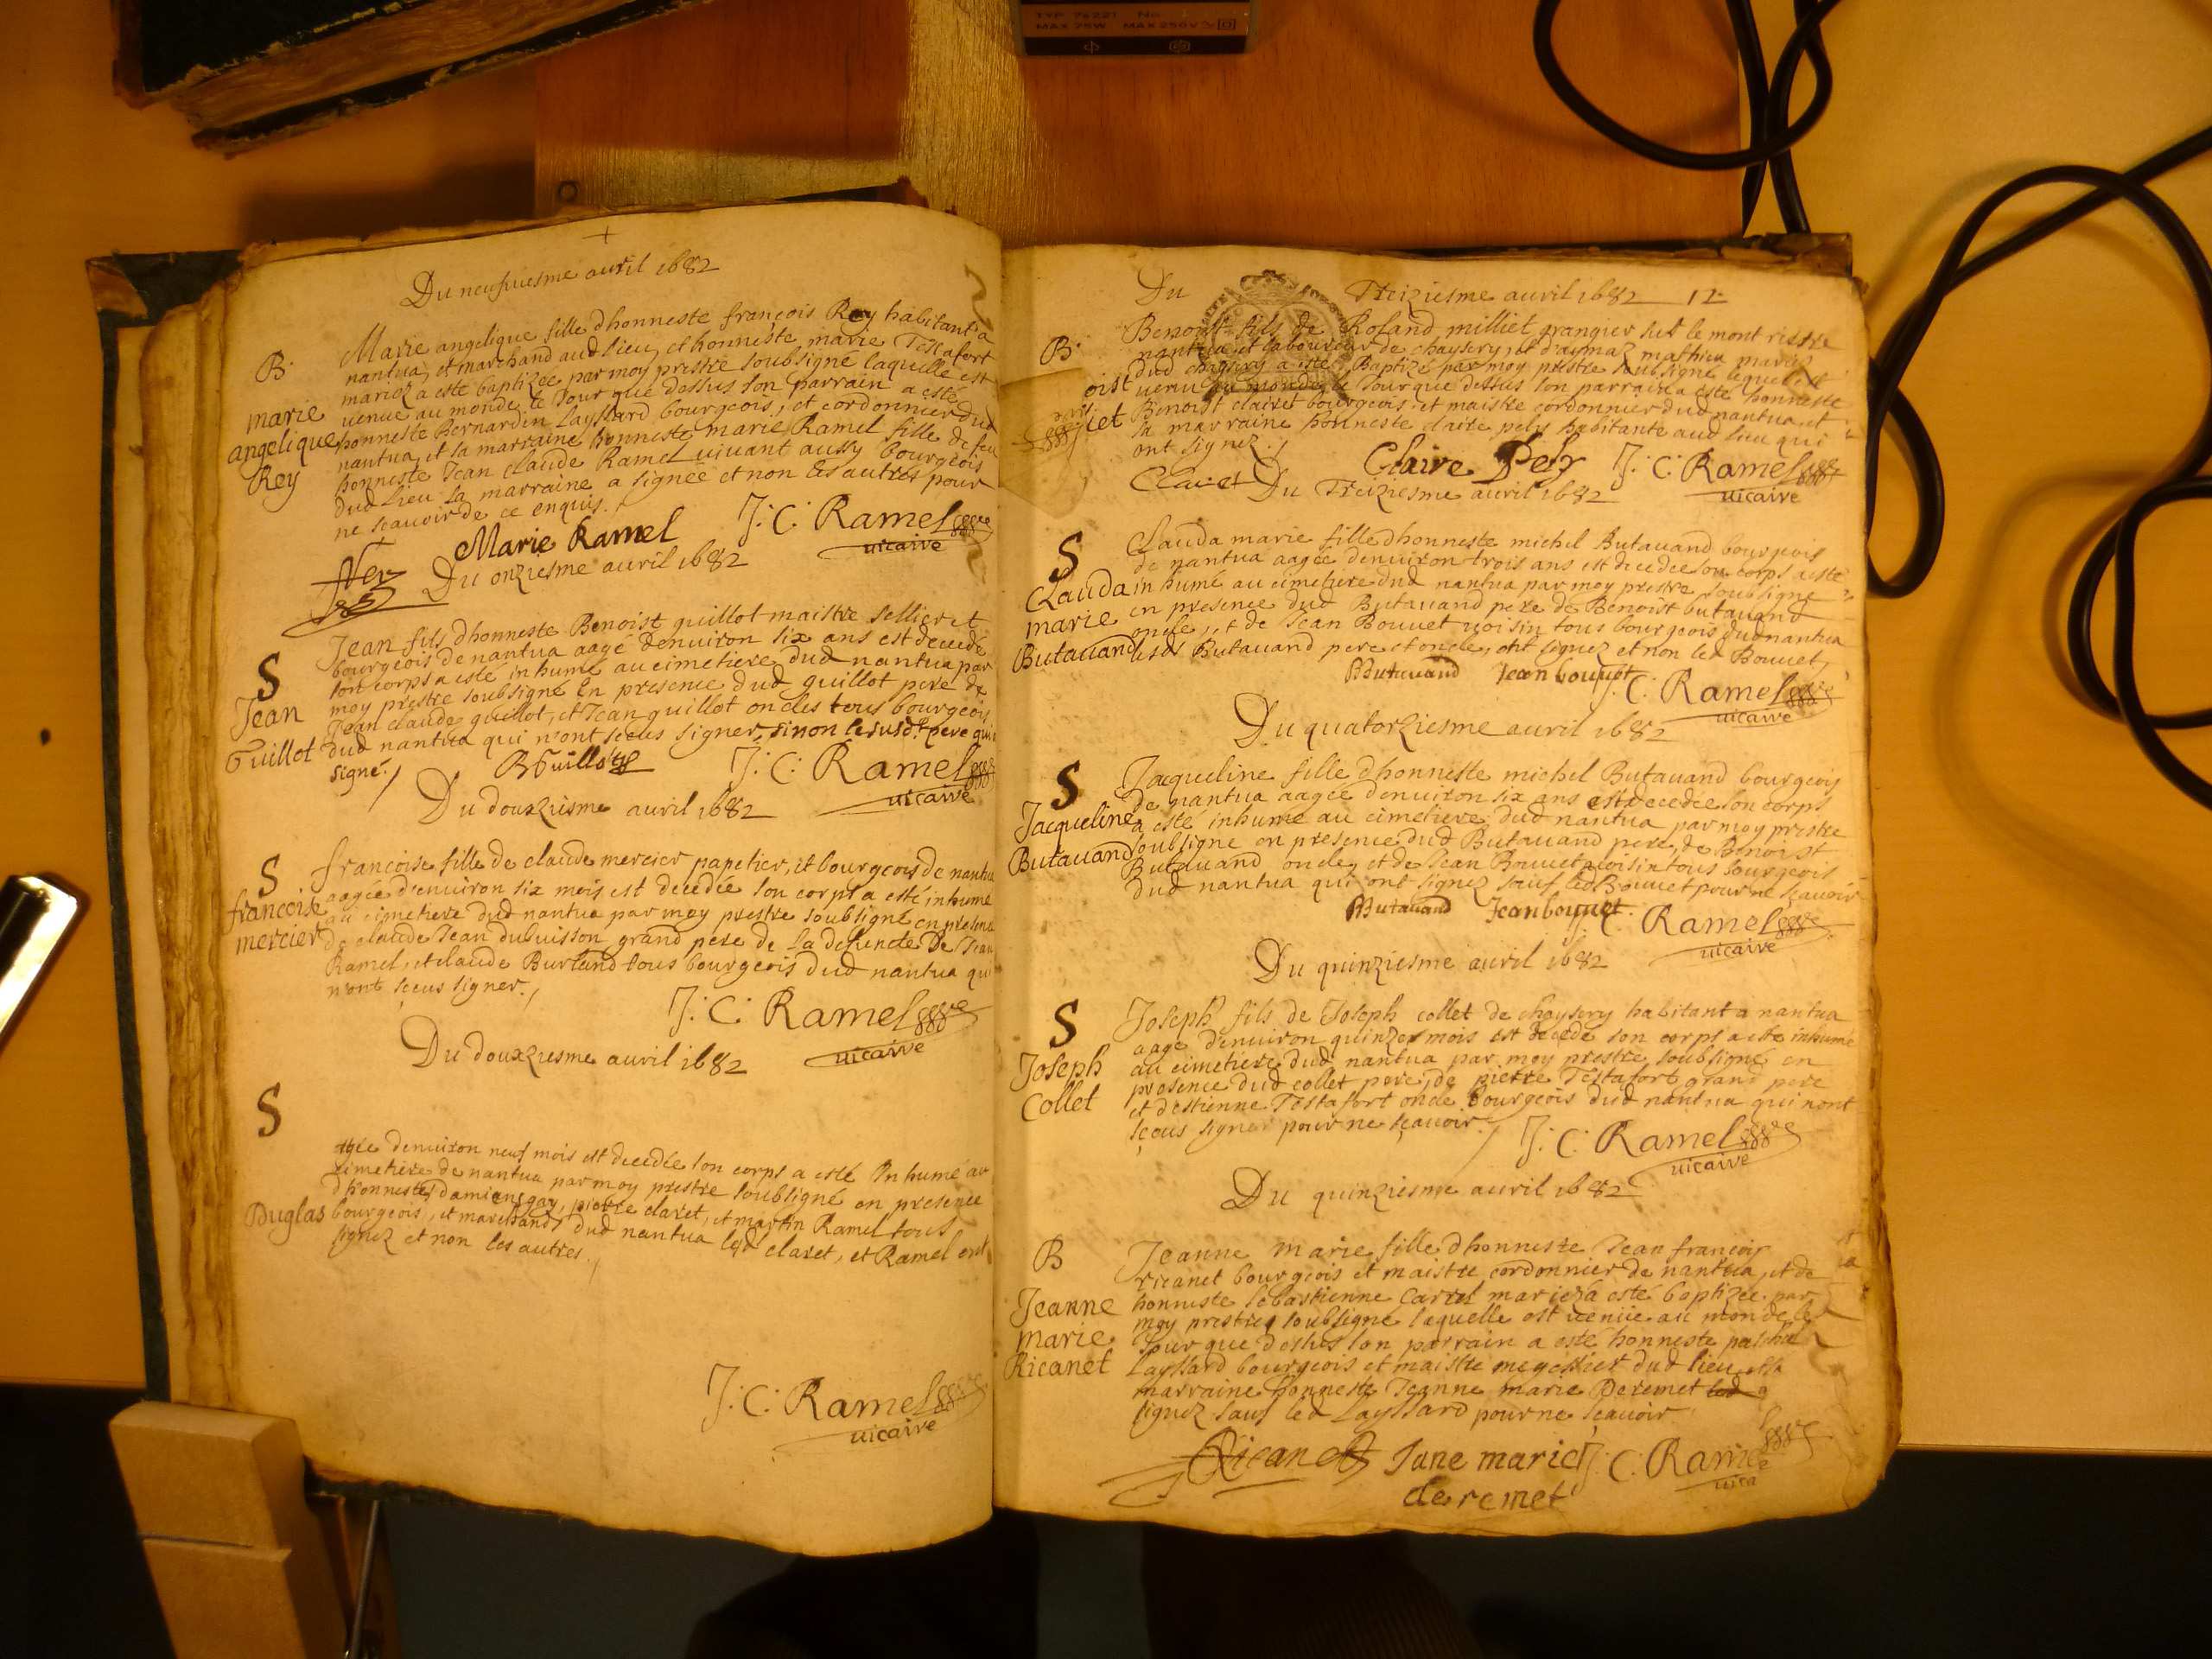 TYP 74221 No
MAX 75W MAX 250V
Du neufuiesme auril 1682
B
marie
angelique
Rey
Marie angelique fille dhonneste françois Rey habitant a
nantua, et marchand aud lieu, et honneste marie Testafort
mariez a este baptizée par moy prestre soubsigné laquelle est
uenue au monde le Jour que dessus son parrain a esté
honneste Bernardin Layssard bourgeois, et cordonnier dud
nantua, et sa marraine honneste marie Ramel fille de feu
honneste Jean claude Ramel uiuant aussy bourgeois
dud Lieu la marraine a signée et non les autres pour
ne sçauoir de ce enquis.
Rey Marie Ramel J: C: Ramel
uicaire
Du onziesme auril 1682
S
Jean
Guillot
Jean fils dhonneste Benoist guillot maistre sellier et
bourgeois de nantua aagé denuiron six ans est decedé
son corps a esté inhumé au cimetiere dud nantua par
moy prestre soubsigné En presence dud guillot pere de
Jean claude guillot, et Jean guillot oncles tous bourgeois
dud nantua qui n'ont sceus signer, sinon le susdt pere qui
signé./
BGuillot J: C: Ramel
uicaire
Du douxziesme auril 1682
S
francoise
mercier
francoise fille de claude mercier papetier, et bourgeois de nantua
aagée d'enuiron six mois est decedée son corps a esté inhumé
au cimetiere dud nantua par moy prestre soubsigné en presence
de claude Jean dubuisson grand pere de la defuncte De Jean
Ramel, et claude Burland tous bourgeois dud nantua qui
n'ont sceus signer./
J: C: Ramel
uicaire
Du douxziesme auril 1682
S
Duglas
agée denuiron neuf mois est decedée son corps a esté Inhumé au
cimetiere de nantua par moy prestre soubsigné en presence
d'honneste damians gay, pierre claret, et martin Ramel tous
bourgeois, et marchands dud nantua lesd claret, et Ramel ont
signez et non les autres./
J: C: Ramel
uicaire
Du Treiziesme auril 1682 12
B
oist
iet
Benoist fils de Roland milliet grangier sus le mont riere
nantua et laboureur de chaysery, et d'aymaz mathieu mariez
dud chaysery a esté Baptizé par moy prestre soubsigné lequel est
uenu au monde le Jour que dessus son parrain a esté honneste
Benoist clairet bourgeois et maistre cordonnier dud nantua et
la marraine honneste claire pely habitante aud lieu qui
ont signez./
Clairet Claire Pely J: C: Ramel
uicaire
Du Treiziesme auril 1682
S
Clauda
marie
Butauand
Clauda marie fille dhonneste michel Butauand bourgeois
de nantua aagée denuiron trois ans est decedée son corps a esté
inhumé au cimetiere dud nantua par moy prestre soubsigné
en presence dud Butauand pere de Benoist butauand
oncle, et de Jean Bouuet uoisin tous bourgeois dud nantua
lesds Butauand pere et oncle, ont signez et non led Bouuet,
Butauand Jean bouuet J: C: Ramel
uicaire
Du quatorziesme auril 1682
S
Jacqueline
Butauand
Jacqueline fille dhonneste michel Butauand bourgeois
de nantua aagée denuiron six ans est decedée son corps
a esté inhumé au cimetiere dud nantua par moy prestre
soubsigne en presence dud Butauand pere, de Benoist
Butauand oncle, et de Jean Bouuet uoisin tous bourgeois
dud nantua qui ont signez sauf led Bouuet pour ne sçauoir
Butauand Jean bouuet J: C: Ramel
uicaire
Du quinziesme auril 1682
S
Joseph
Collet
Joseph fils de Joseph collet de chaysery habitant a nantua
aagé denuiron quinze mois est decedé son corps a esté inhumé
au cimetiere dud nantua par moy prestre soubsigné en
presence dud collet pere, de pierre Testafort grand pere
et destienne Testafort oncle bourgeois dud nantua qui nont
sceus signer pour ne sçauoir./
J: C: Ramel
uicaire
Du quinziesme auril 1682
B
Jeanne
marie
Ricanet
Jeanne marie fille dhonneste Jean françois
ricanet bourgeois et maistre cordonnier de nantua, et de
honneste sebastienne Carrel mariez a esté baptizée par
moy prestre soubsigné laquelle est uenüe au monde le
Jour que dessus son parrain a esté honneste paschal
Layssard bourgeois et maistre megissier dud lieu et sa
marraine honneste Jeanne marie Deremet
signez sauf led Layssard pour ne sçauoir
Ricanet Jane marie J: C: Rame
deremet uica